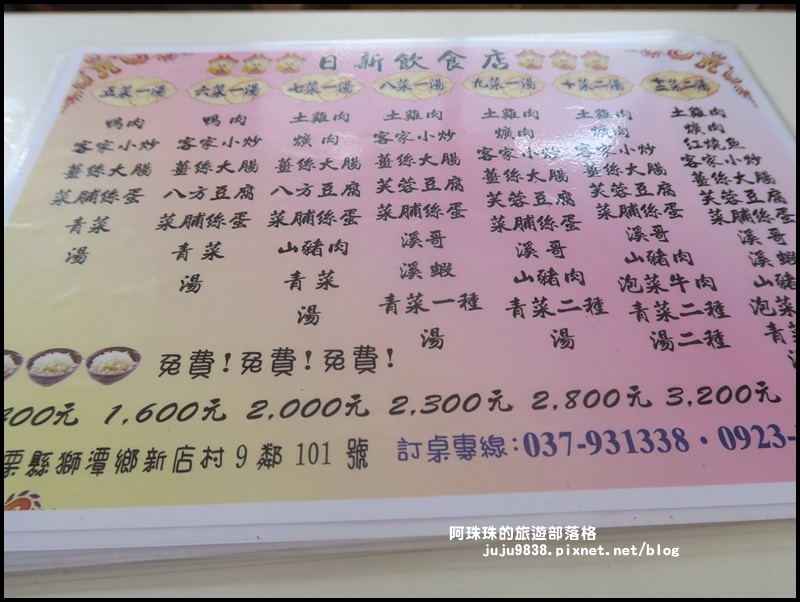 日新飲食店
五菜一湯
鴨肉
客家小炒
薑絲大腸
菜脯絲蛋
青菜
湯
六菜一湯
鴨肉
客家小炒
薑絲大腸
八方豆腐
菜脯絲蛋
青菜
湯
七菜一湯
土雞肉
爌肉
客家小炒
薑絲大腸
八方豆腐
菜脯絲蛋
山豬肉
青菜
湯
八菜一湯
土雞肉
客家小炒
薑絲大腸
芙蓉豆腐
菜脯絲蛋
溪哥
溪蝦
青菜一種
湯
九菜一湯
土雞肉
爌肉
客家小炒
薑絲大腸
芙蓉豆腐
菜脯絲蛋
溪哥
山豬肉
青菜二種
湯
十菜二湯
土雞肉
爌肉
客家小炒
薑絲大腸
芙蓉豆腐
菜脯絲蛋
溪哥
山豬肉
泡菜牛肉
青菜二種
湯二種
土雞肉
爌肉
紅燒魚
客家小炒
薑絲大腸
芙蓉豆腐
菜脯絲蛋
溪哥
溪蝦
山豬
泡菜
青
免費!免費!免費!
00元 1,600元 2,000元 2,300元 2,800元 3,200元
栗縣獅潭鄉新店村9鄰101號 訂桌專線:037-931338・0923-
阿珠珠的旅遊部落格
juju9838.pixnet.net/blog